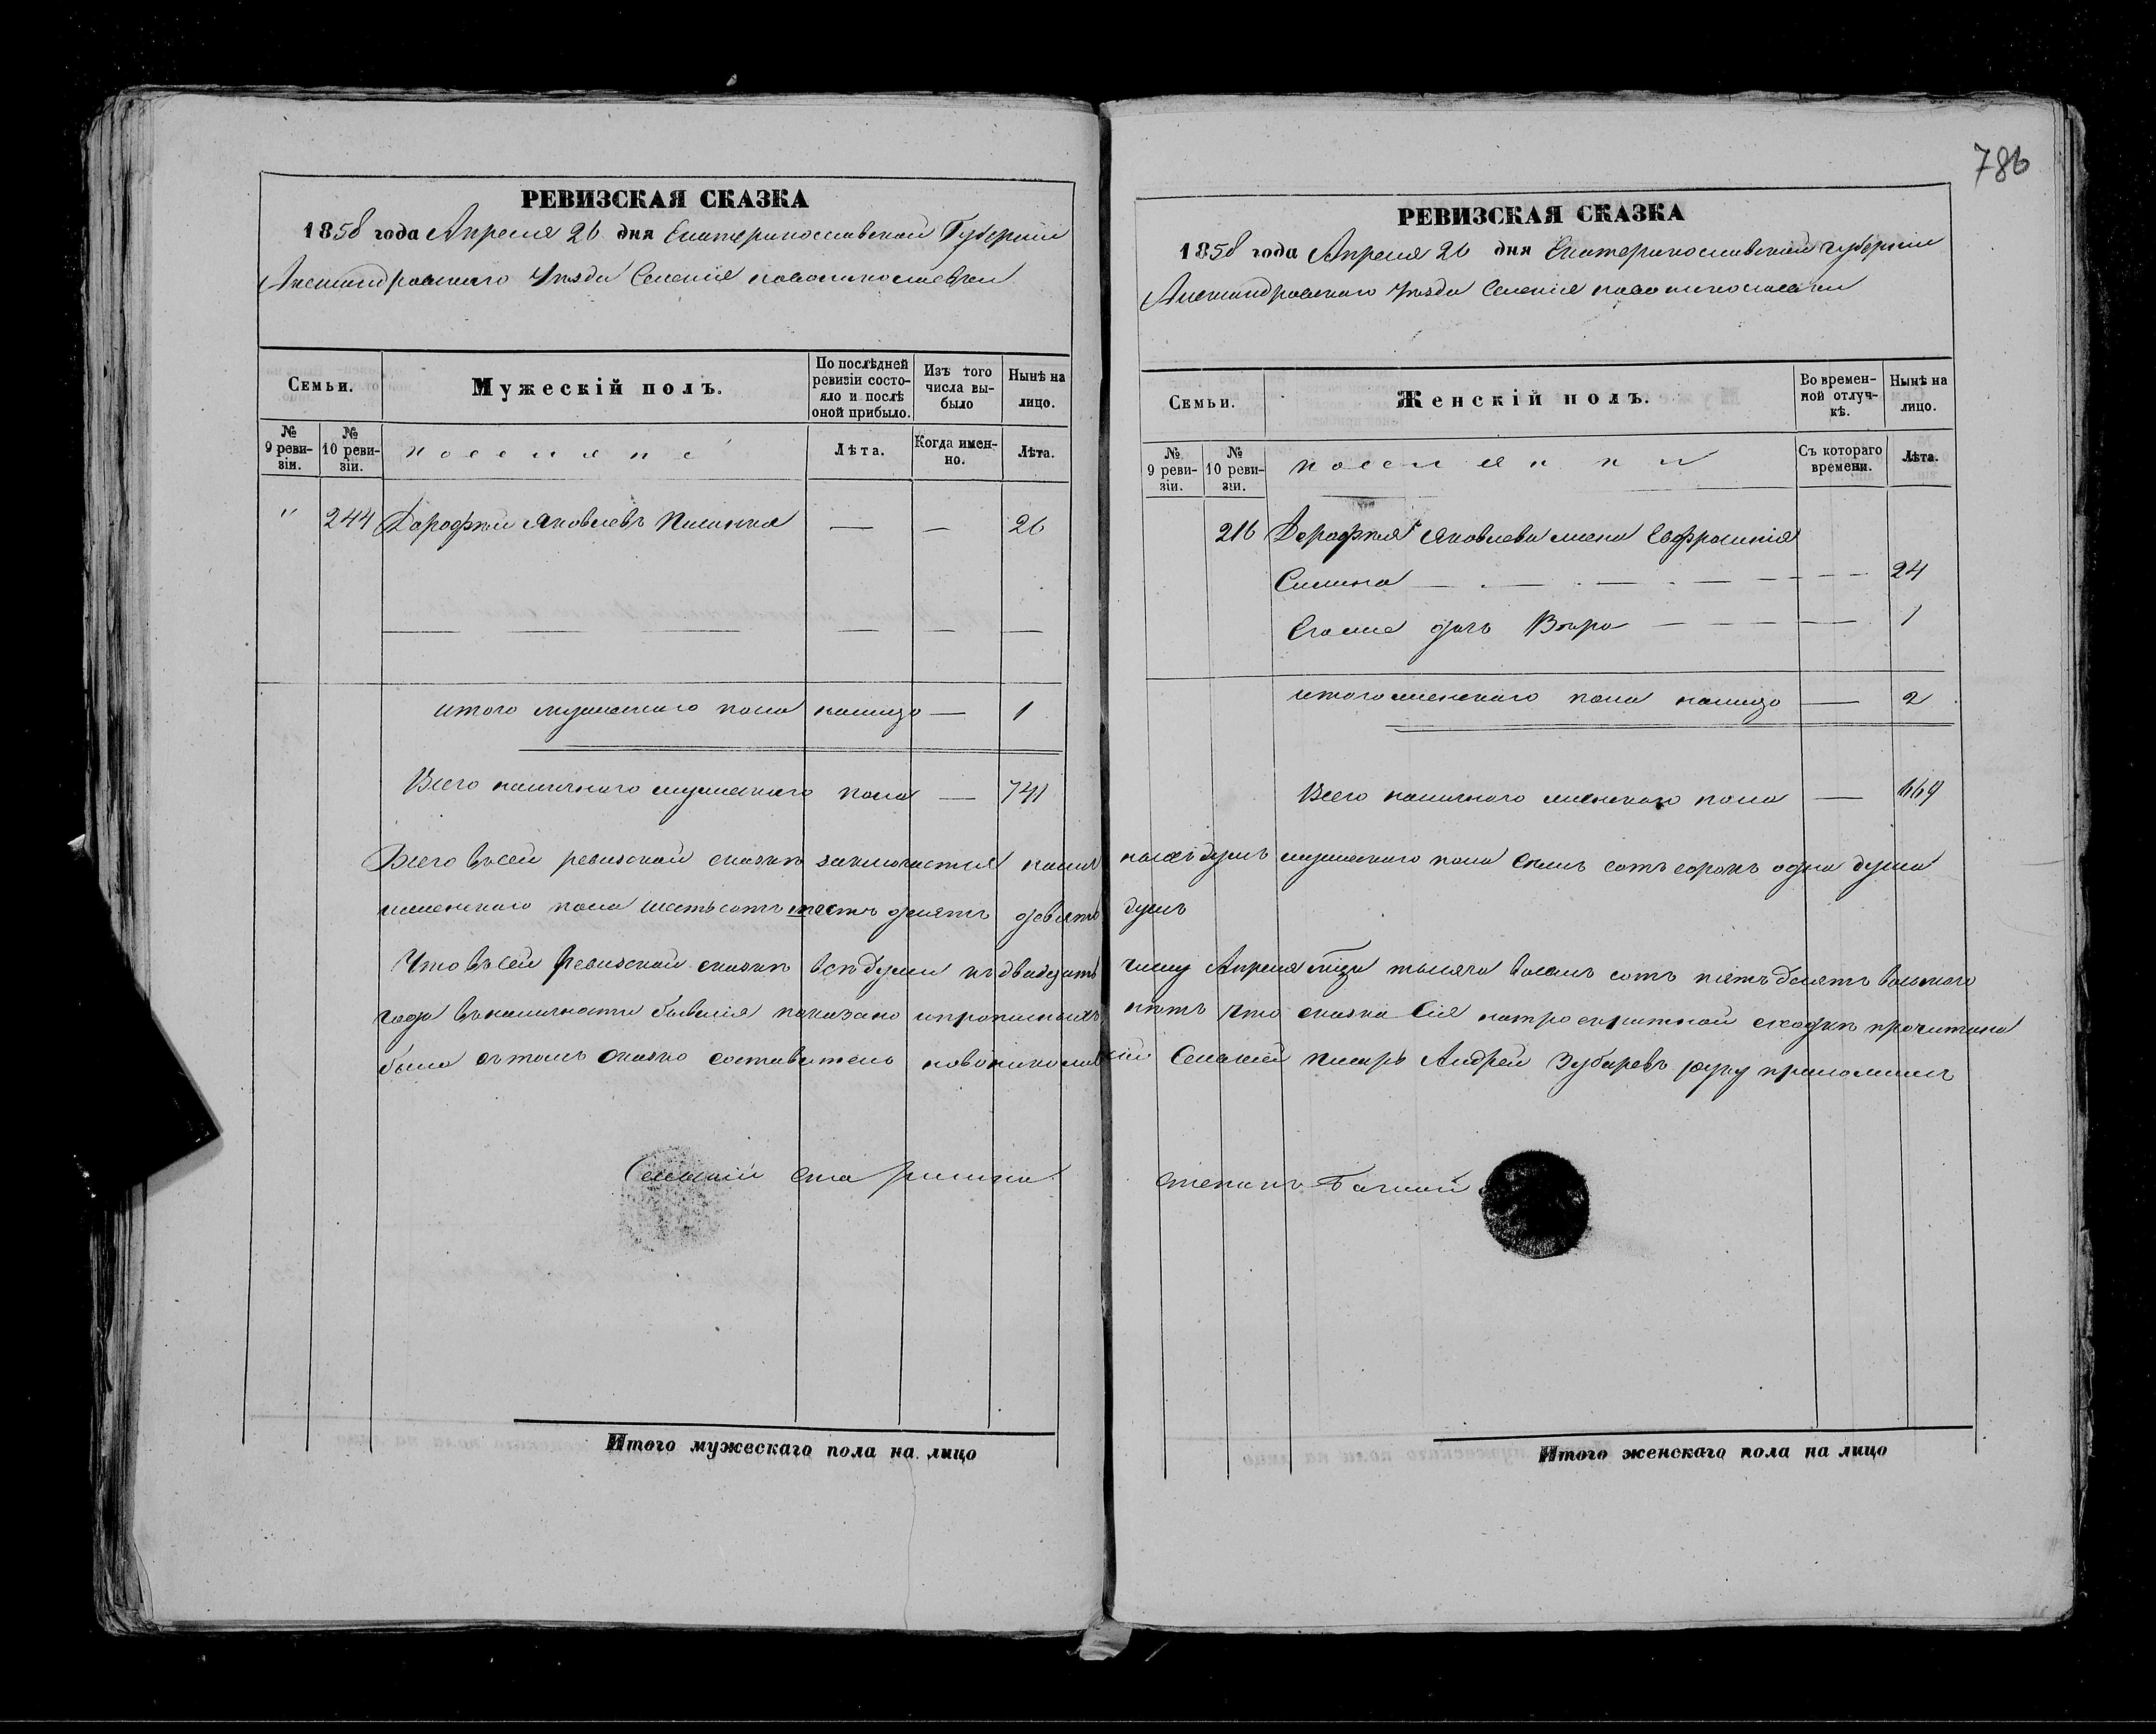 РЕВИЗСКАЯ СКАЗКА
1858 года Апреля 26 дня Екатеринославской Губернии
Александровского Уѣзда Селенія новониколаевки
Семьи.
Мужескій полъ.
По послѣдней ревизіи состояло и послѣ оной прибыло.
Изъ того числа выбыло
Нынѣ на лицо.
№ 9 ревизіи.
№ 10 ревизіи.
поселяне
Лѣта.
Когда именно.
Лѣта.
" 244 Дарофѣй Яковлевъ — — 26
— — — — —
итого мужескаго пола налицо — 1
Всего наличного мужескаго пола — 741
Итого мужескаго пола на лицо
786
РЕВИЗСКАЯ СКАЗКА
1858 года Апреля 26 дня Екатеринославской губерніи
Александровского Уѣзда Селенія новониколаевки
Семьи.
Женскій полъ.
Во временной отлучкѣ.
Нынѣ на лицо.
№ 9 ревизіи.
№ 10 ревизіи.
поселянки
Съ котораго времени.
Лѣта.
216 Дорофѣя Яковлева жена Ефросинія
24
Егоже дочь Вѣра — — — — 1
итого женскаго пола налицо — 2
Всего наличного женскаго пола — 669
Всего въсей ревизской сказкѣ заключается наличныхъ душъ мужескаго пола семь сотъ сорокъ одна душа
женскаго пола шестьсотъ шестьдесятъ девять душъ
Что въсей Ревизской сказкѣ всѣ души къ двадцать числу Апреля тысяча восемь сотъ пятьдесятъ восьмого
года въналичности бывшія показано ипрописныхъ нѣтъ что сказка сія сходкѣ прочитана
была въ томъ сказко составитель новониколаевскій Сельскій писарь Андрей Зубаревъ руку приложилъ
Сельскій старшина Степанъ
Итого женскаго пола на лицо